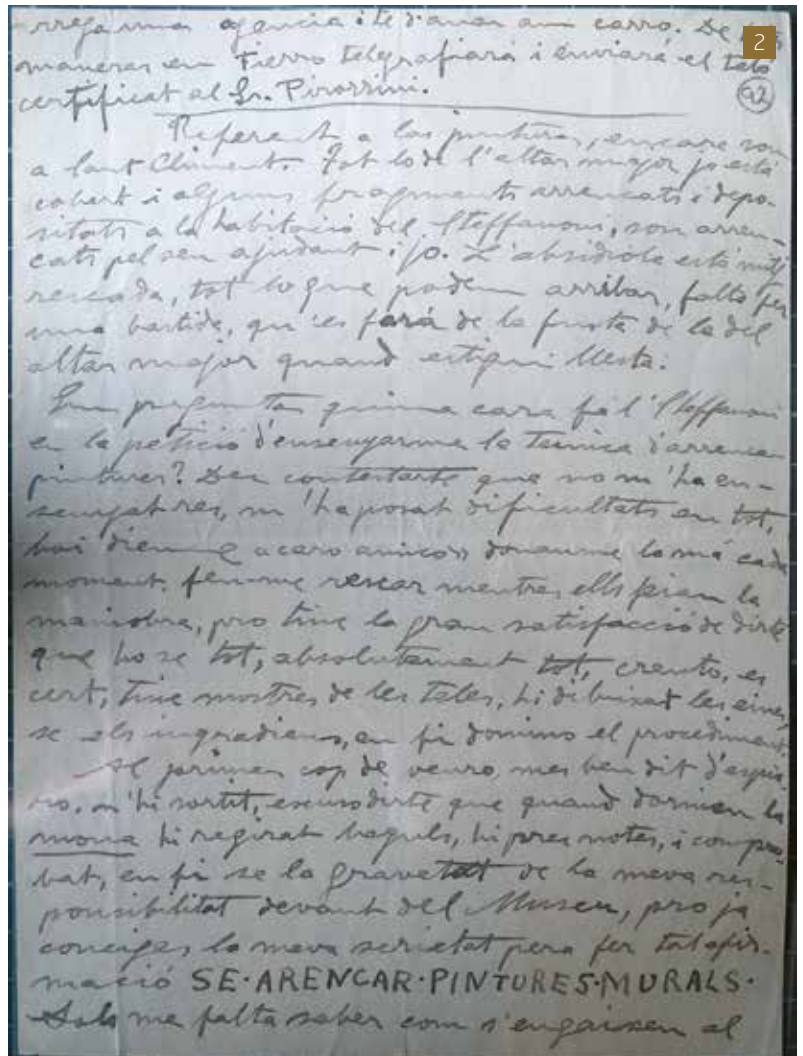 2
rrega una agencia i te d'anar am carro. De
maneras en Fierro telegrafiará i enviará el talo
certificat al Sr. Pirozzini.
92
Referent a las pinturas, encare son
a Sant Climent. Tot lo de l'altar major ja está
cobert i alguns fragments arrencats i depo-
sitats a la habitació del Steffanoni, son arren-
cats pel seu ajudant i jo. L'absidiola está mitj
rescada, tot lo que podem arribar, falta fer
una bastida, qu'es fará de la fusta de la del
altar major quand estigui llesta.
Em preguntas quina cara fá l'Steffanoni
en la petició d'ensenyarme la tecnica d'arrencar
pintures? Dec contestarte que no m'ha en-
senyat res, m'ha posat dificultats en tot,
boi dienme «caro amico» donanme la má cada
moment, fenme rescar mentres ells feian la
maniobra, pro tinc la gran satisfacció de dirte
que ho se tot, absolutament tot, creuto, es
cert, tinc mostres de les teles, hi dibuixat les eines,
se els ingradiens, en fi domino el procediment
Al primer cop de veuro, mes ben dit d'espia-
ro, m'hi sortit, escuso dirte que quand dormien la
mona hi regirat baguls, hi pres notes, i compro-
bat, en fi se la gravetat de la meva res-
ponsibilitat devant del Museu, pro ja
coneiges la meva serietat pera fer tal afir-
mació SE·ARENCAR·PINTURES·MURALS·
Sols me falta saber com s'engaixen al